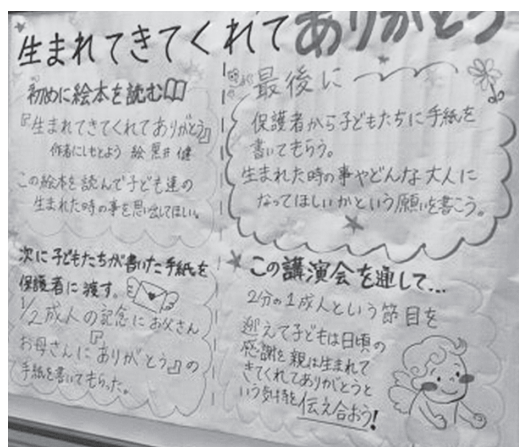 生まれてきてくれてありがとう
初めに絵本を読む
『生まれてきてくれてありがとう』
作者にしもとよう 絵 黒井 健
この絵本を読んで子ども達の
生まれた時の事を思出してほしい。
次に子どもたちが書いた手紙を
保護者に渡す。
1/2成人の記念にお父さん
お母さんに『ありがとう』の
手紙を書いてもらった。
最後に
保護者から子どもたちに手紙を
書いてもらう。
生まれた時の事やどんな大人に
なってほしいかという願いを書こう。
この講演会を通して...
2分の1成人という節目を
迎えて子どもは日頃の
感謝を親は生まれて
きてくれてありがとうと
いう気持を伝え合おう!